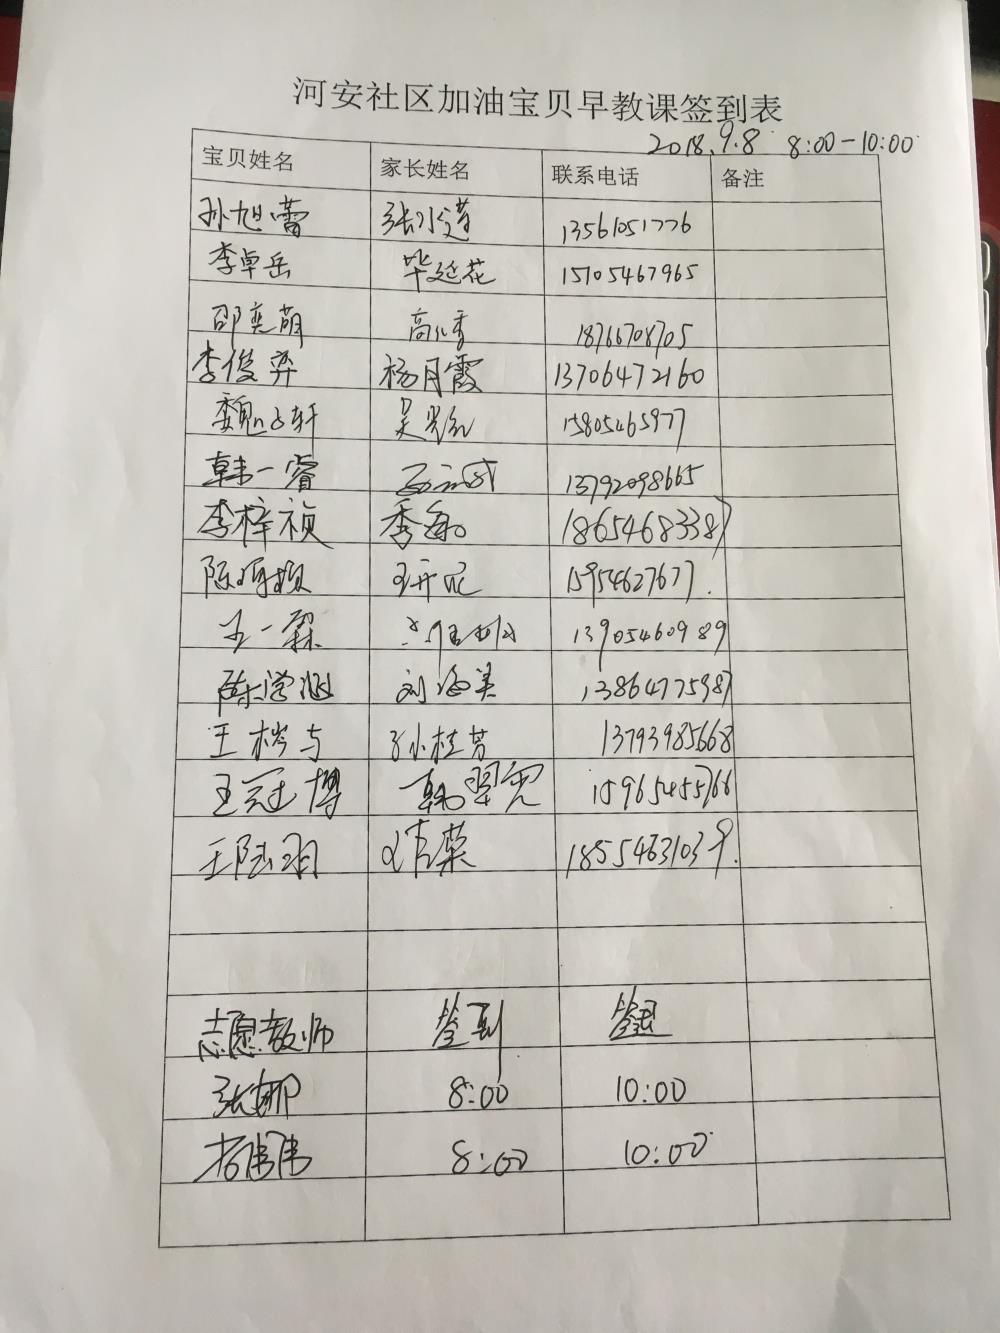 河安社区加油宝贝早教课签到表
2018.9.8 8:00-10:00
宝贝姓名 家长姓名 联系电话 备注
孙旭蕾 13561051776
李卓岳 毕延花 15105467965
邵奕萌 高秀 18766708705
李俊弈 杨月霞 13706472160
魏子轩 吴 15805465977
韩一睿 13792098665
李梓祯 季 18654683387
陈 王 15954627677.
王一霖 13905460989
陈学涵 刘海美 13864775987
王梣与 孙桂芳 13793985668
王冠博 韩翠 15965455766
王 荣 18554631039.
志愿教师 签到 签退
张娜 8:00 10:00
杨伟伟 8:00 10:00